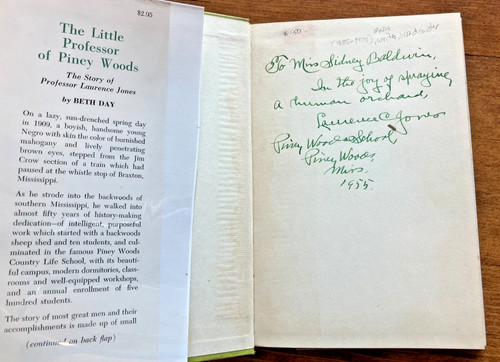 $2.95
The Little
Professor
of Piney Woods
The Story of
Professor Laurence Jones
by BETH DAY
On a lazy, sun-drenched spring day
in 1909, a boyish, handsome young
Negro with skin the color of burnished
mahogany and lively penetrating
brown eyes, stepped from the Jim
Crow section of a train which had
paused at the whistle stop of Braxton,
Mississippi.
As he strode into the backwoods of
southern Mississippi, he walked into
almost fifty years of history-making
dedication—of intelligent, purposeful
work which started with a backwoods
sheep shed and ten students, and cul-
minated in the famous Piney Woods
Country Life School, with its beauti-
ful campus, modern dormitories, class-
rooms and well-equipped workshops,
and an annual enrollment of five
hundred students.
The story of most great men and their
accomplishments is made up of small
(continued on back flap)
To Miss Sidney Baldwin,
In the joy of spraying
a human orchard,
Laurence C. Jones
Piney Woods School
Piney Woods
Miss.
1955